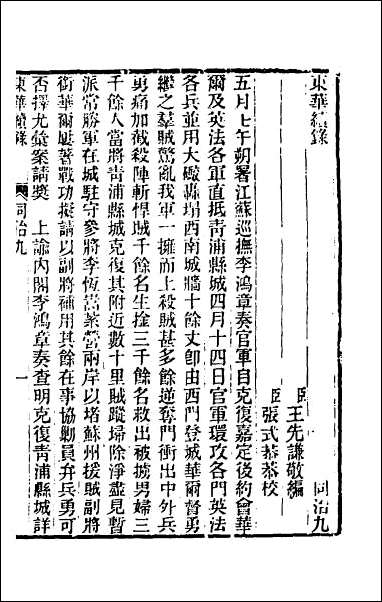 東華續錄　同治九
臣王先謙敬編
臣張式恭恭校
五月戊午朔署江蘇巡撫李鴻章奏官軍自克復嘉定後約會華
爾及英法各軍直抵靑浦縣城四月十四日官軍環攻各門英法
各兵並用大礮轟塌西南城牆十餘丈卽由西門登城華爾督勇
繼之羣賊驚亂我軍一擁而上殺賊甚多餘逆奪門衝出中外兵
勇痛加截殺陣斬悍賊千餘名生擒三千餘名救出被擄男婦三
千餘人當將靑浦縣城克復其附近數十里賊蹤埽除淨盡見暫
派常勝軍在城駐守參將李恆嵩紮營兩岸以堵蘇州援賊副將
銜華爾屢著戰功擬請以副將補用其餘在事協勦員弁兵勇可
否擇尤彙案請奬　上諭內閣李鴻章奏查明克復靑浦縣城詳
東華續錄　同治九　一